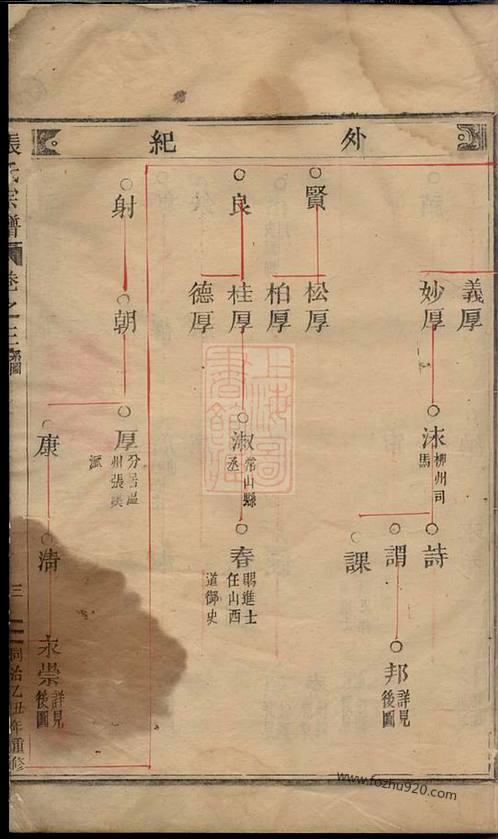 外紀
義厚
妙厚
沬 柳州司馬
詩
謂
課
邦 詳見後圖
賢
松厚
柏厚
良
桂厚
德厚
淑 常山縣丞
春 賜進士任山西道御史
射
朝
厚 分居溫州張溪派
康
清
永崇 詳見後圖
張氏宗譜
卷之三
三
同治乙丑年重修
上海圖書館藏
www.fozhu920.com